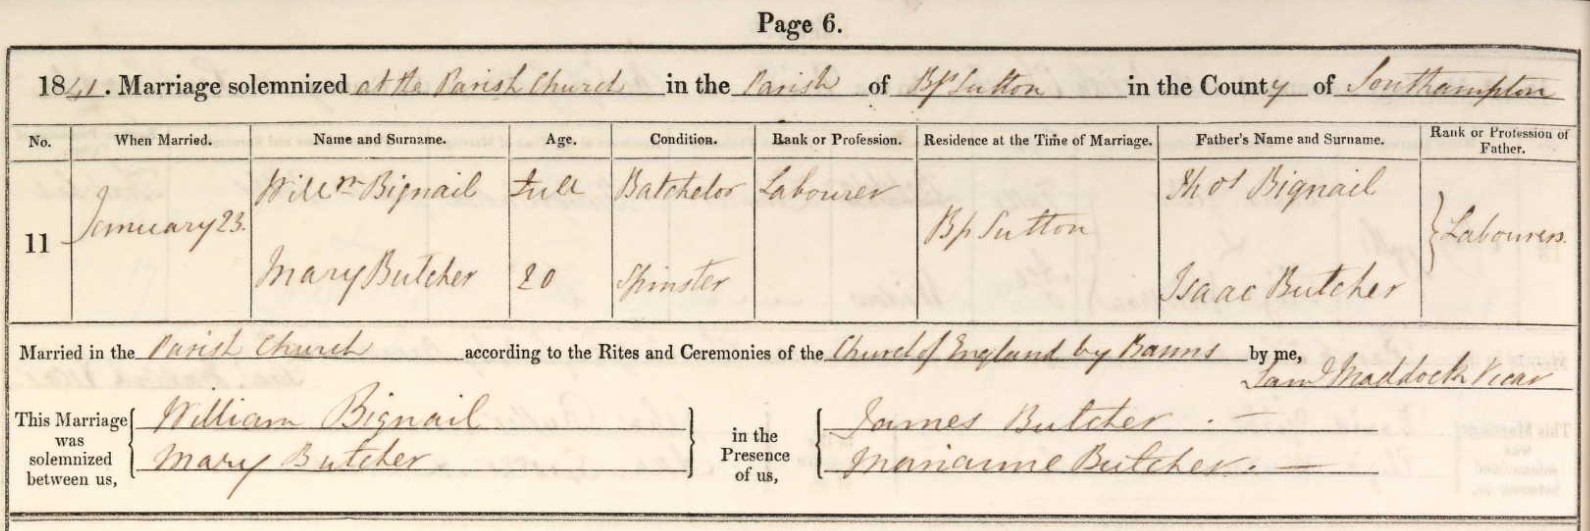 Page 6.
1841. Marriage solemnized at the Parish Church in the Parish of Bp Sutton in the County of Southampton
No. When Married. Name and Surname. Age. Condition. Rank or Profession. Residence at the Time of Marriage. Father's Name and Surname. Rank or Profession of Father.
Willm Bignail Full Batchelor Labourer Thos Bignail
11 January 23. Bp Sutton Labourers.
Mary Butcher 20 Spinster Isaac Butcher
Married in the Parish Church according to the Rites and Ceremonies of the Church of England by Banns by me,
Saml Maddock Vicar
This Marriage was solemnized between us, William Bignail in the Presence of us, James Butcher
Mary Butcher Marianne Butcher.